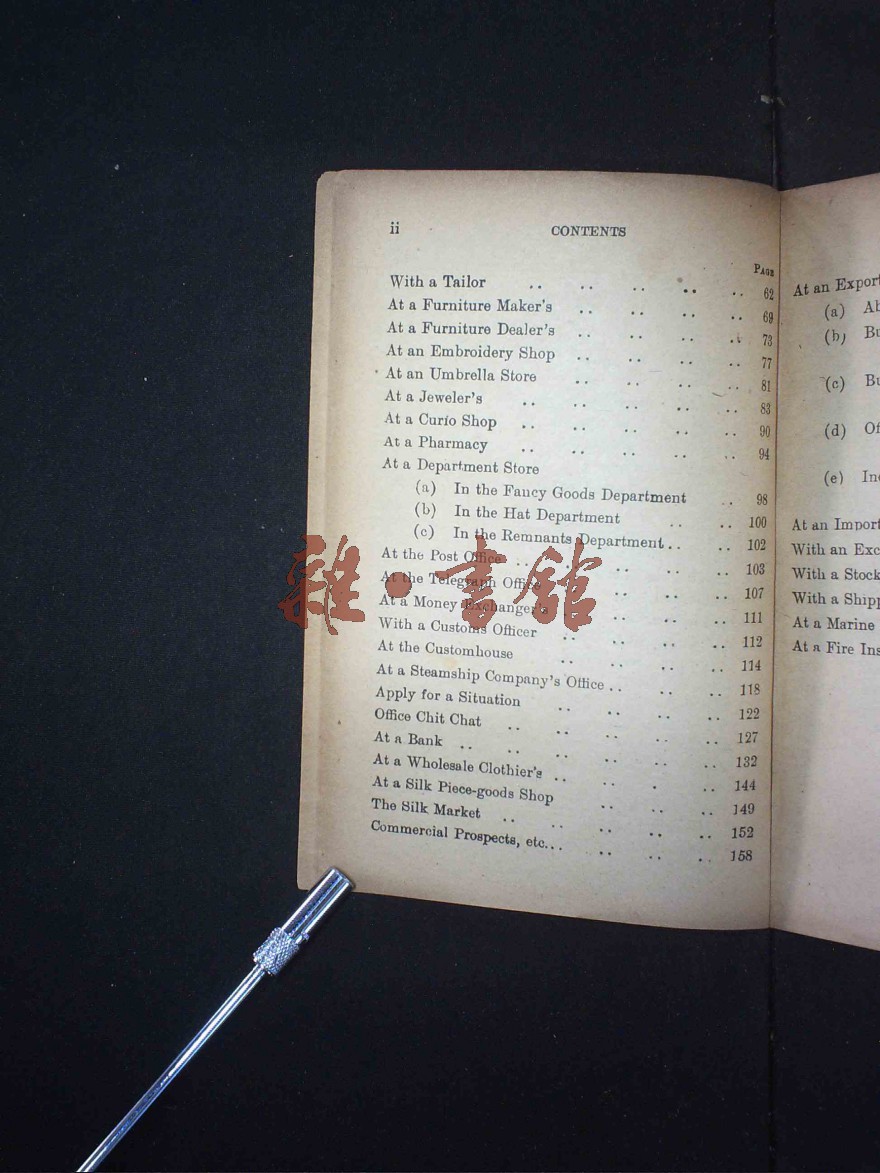 ii CONTENTS
PAGE
With a Tailor .. .. .. .. .. 62
At a Furniture Maker's .. .. .. .. 69
At a Furniture Dealer's .. .. .. .. 73
At an Embroidery Shop .. .. .. .. 77
At an Umbrella Store .. .. .. .. 81
At a Jeweler's .. .. .. .. .. 83
At a Curio Shop .. .. .. .. .. 90
At a Pharmacy .. .. .. .. .. 94
At a Department Store
(a) In the Fancy Goods Department .. 98
(b) In the Hat Department .. .. 100
(c) In the Remnants Department.. .. 102
At the Post Office .. .. .. .. .. 103
At the Telegraph Office .. .. .. .. 107
At a Money Exchanger's .. .. .. .. 111
With a Customs Officer .. .. .. .. 112
At the Customhouse .. .. .. .. 114
At a Steamship Company's Office .. .. .. 118
Apply for a Situation .. .. .. .. 122
Office Chit Chat .. .. .. .. .. 127
At a Bank .. .. .. .. .. .. 132
At a Wholesale Clothier's .. .. . .. 144
At a Silk Piece-goods Shop .. .. .. 149
The Silk Market .. .. .. .. .. 152
Commercial Prospects, etc... .. .. .. 158
雜·書館
At an Export
(a)
(b)
(c)
(d)
(e)
At an Import
With an
With a Stock
With a
At a Marine
At a Fire